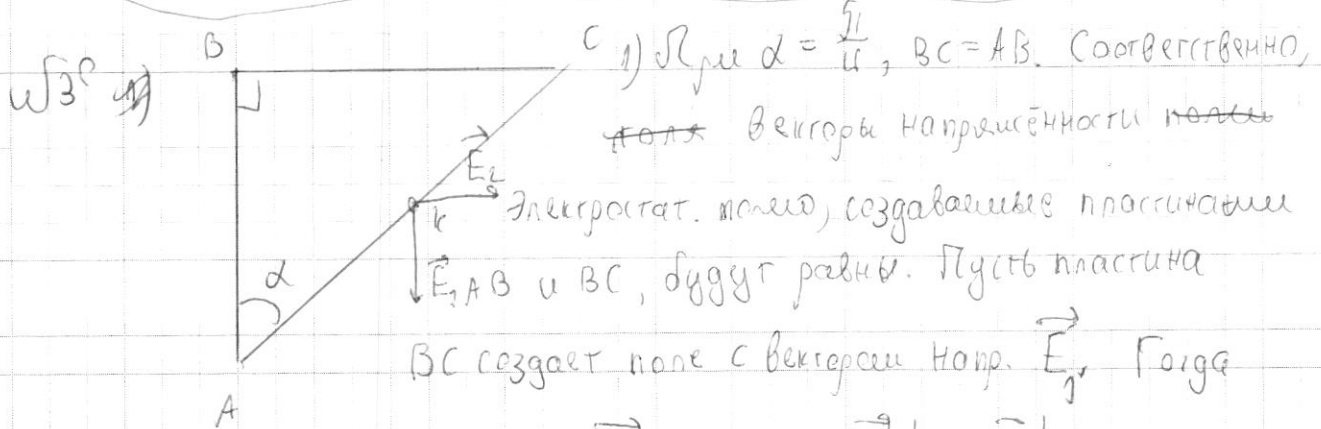 B
C 1) При α = π/4, BC = AB. Соответственно,
№3°
векторы напряжённости
E₂
K электростат. поля, создаваемые пластинами
α E₁ AB и BC, будут равны. Пусть пластина
BC создает поле с вектором напр. E₁. Тогда
A